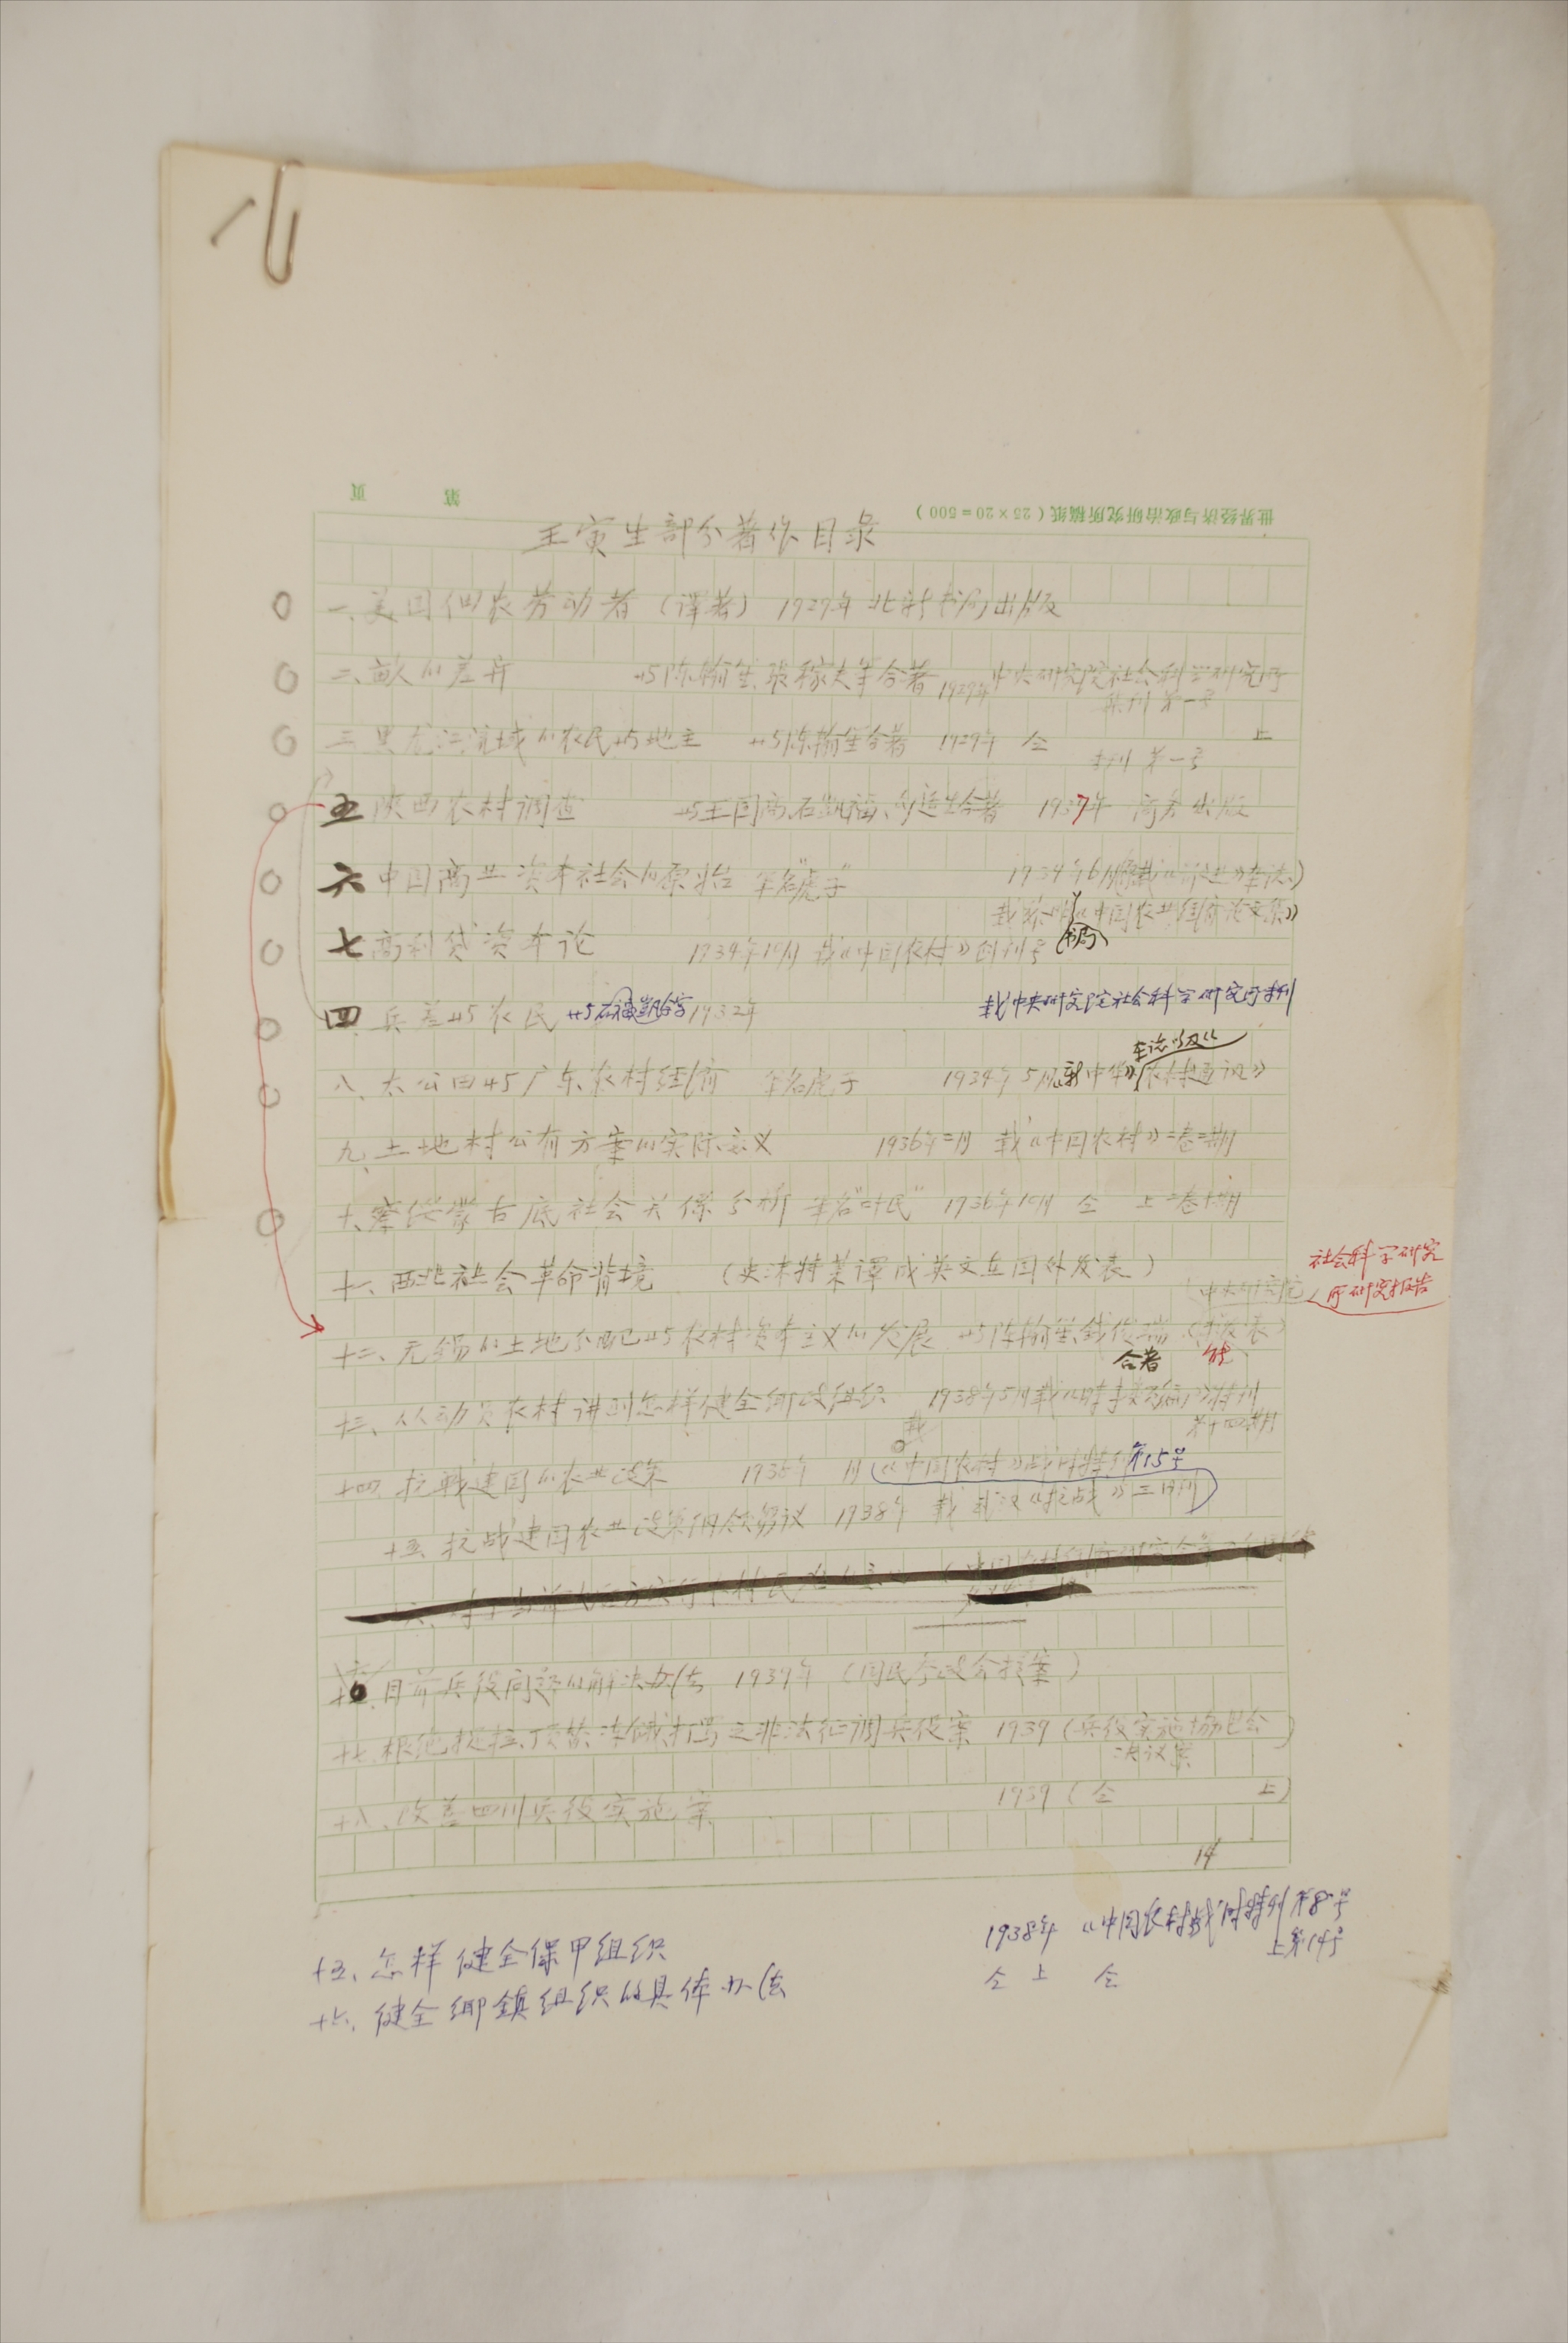 世界经济与政治研究所稿纸（25×20=500）
第 页
王寅生部分著作目录
一、美国佃农劳动者（译著） 1929年 北新书局出版
二、亩的差异 与陈翰笙、张稼夫等合著 1929年 中央研究院社会科学研究所
集刊 第一号
三、黑龙江流域的农民与地主 与陈翰笙合著 1929年 仝 上
专刊 第一号
五 陕西农村调查 与王国高、石凯福、 合著 1937年 商务出版
六 中国商业资本社会的原始 笔名"虎子" 1934年6月 杂志）
《中国农业经济论文集》
书局
七 高利贷资本论 1934年10月 载《中国农村》创刊号
四 兵差与农民 与石凯福合著 1932年 载中央研究院社会科学研究所专刊
杂志以及《
八、太公田与广东农村经济 笔名虎子 1934年5月《新中华》《农村通讯》
九、土地村公有方案的实际意义 1936年二月 载《中国农村》二卷二期
十、察绥蒙古底社会关系分析 笔名"叶民" 1936年10月 仝 上 二卷十期
十一、西北社会革命背境 （史沫特莱译成英文在国外发表）
社会科学研究
（中央研究院 所研究报告
十二、无锡的土地分配与农村资本主义的发展 与陈翰笙、钱俊瑞 发表）
合著
十三、从动员农村讲到怎样健全乡政组织 1938年5月载《时事类编》特刊
第十四期
载
十四、抗战建国的农业政策 1938年 月《中国农村》战时特刊第15号
十五、抗战建国农业政策 议 1938年 载 武汉《抗战》三日刊
目前兵役问题的解决办法 1939年（国民参政会提案）
十七、根绝捉拉、顶替、冻饿、打骂之非法征调兵役案 1939（兵役实施协进会
决议案
十八、改善四川兵役实施案 1939（仝 上）
14
十五、怎样健全保甲组织 1938年《中国农村战时特刊第8号
十六、健全乡镇组织的具体办法 仝 上 仝 上第14号